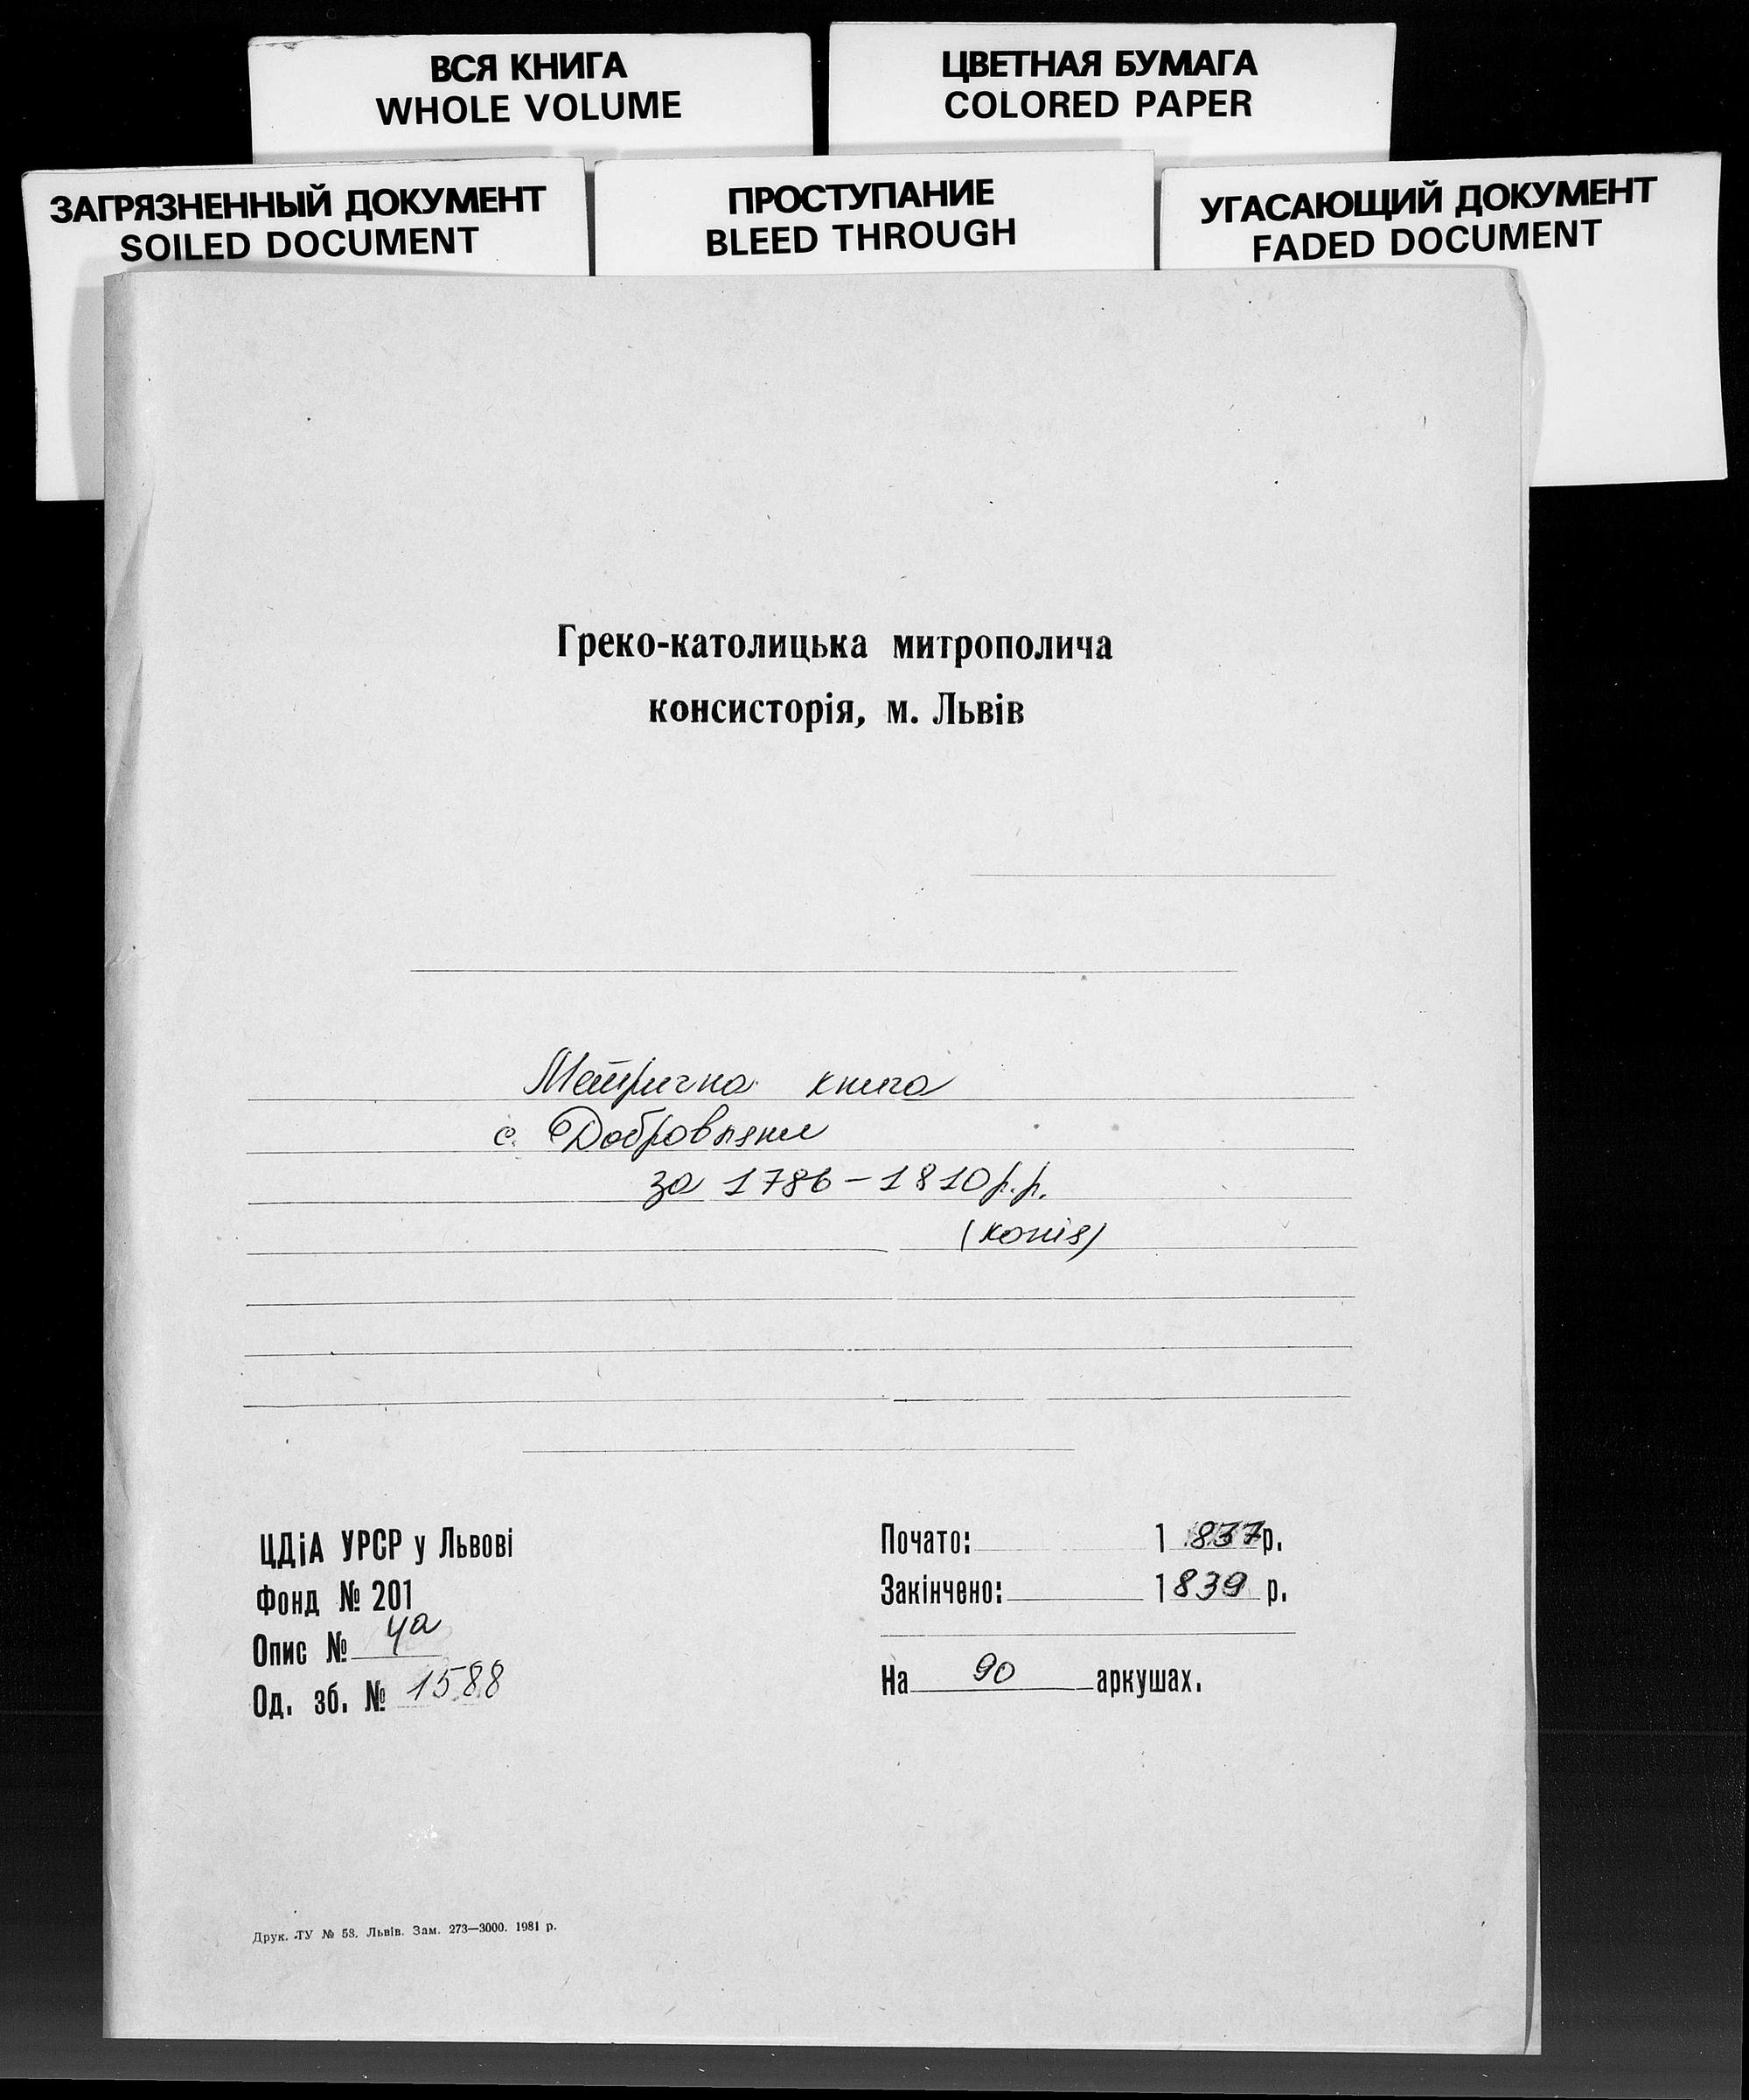 ВСЯ КНИГА
WHOLE VOLUME
ЦВЕТНАЯ БУМАГА
COLORED PAPER
ЗАГРЯЗНЕННЫЙ ДОКУМЕНТ
SOILED DOCUMENT
ПРОСТУПАНИЕ
BLEED THROUGH
УГАСАЮЩИЙ ДОКУМЕНТ
FADED DOCUMENT
Греко-католицька митрополича
консисторія, м. Львів
Метрична книга
с. Добровляни
за 1786-1810 р.р.
(копія)
ЦДіА УРСР у Львові
Фонд № 201
Опис № 4а
Од. зб. № 1588
Почато: 1837р.
Закінчено: 1839 р.
На 90 аркушах.
Друк. ТУ № 58. Львів. Зам. 273—3000. 1981 р.